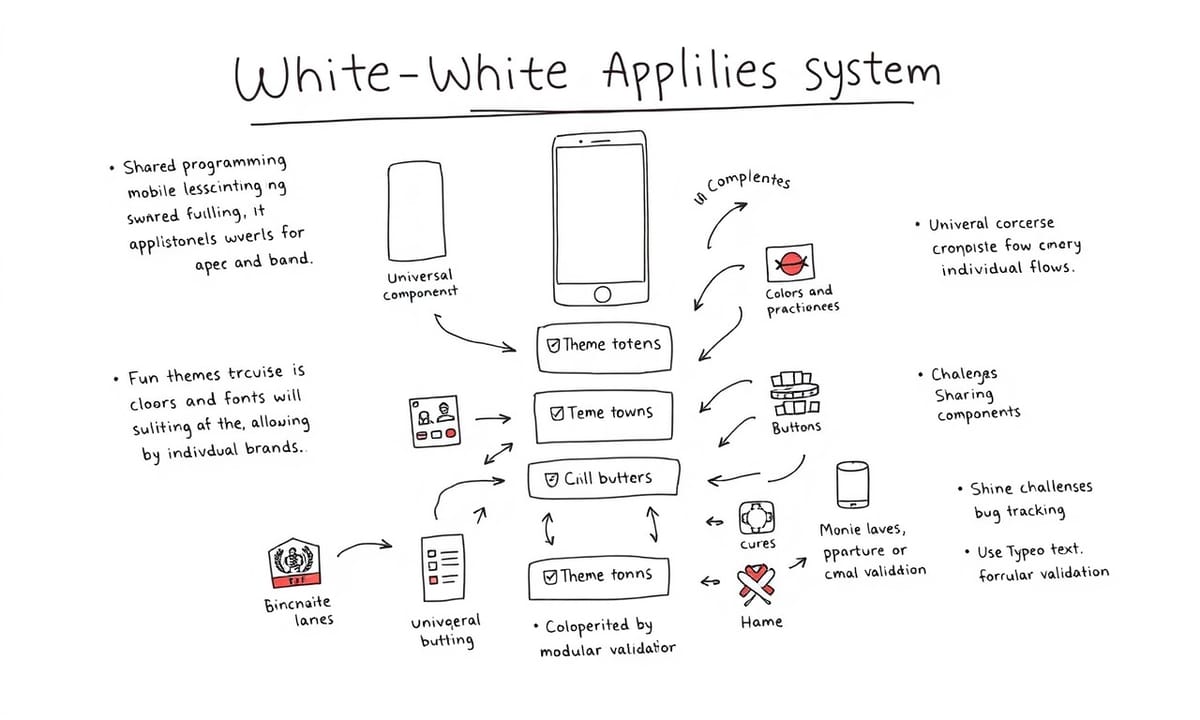 White-White Applilies system
• Shared programming
mobile lesscinting ng
swared fuilling, it
applistonels wverls for
apec and band.
Universal
component
ın Complentes
Colors and
practionees
• Univeral corcerse
cronpiste fow cmory
individual flows.
Theme totens
• Fun themes trcuise is
cloors and fonts will
suliting af the, allowing
by indivdual brands.
Teme towns
Buttons
• Chalenges
Sharing
components
Crill butters
• Shine challenses
bug tracking
• Use Typeo text.
forrular validation
Monie laves,
pparture or
cmal validdtion
cures
Theme tonns
Hame
Bincnaite
lanes
univgeral
butting
• Coloperited by
modular validatior